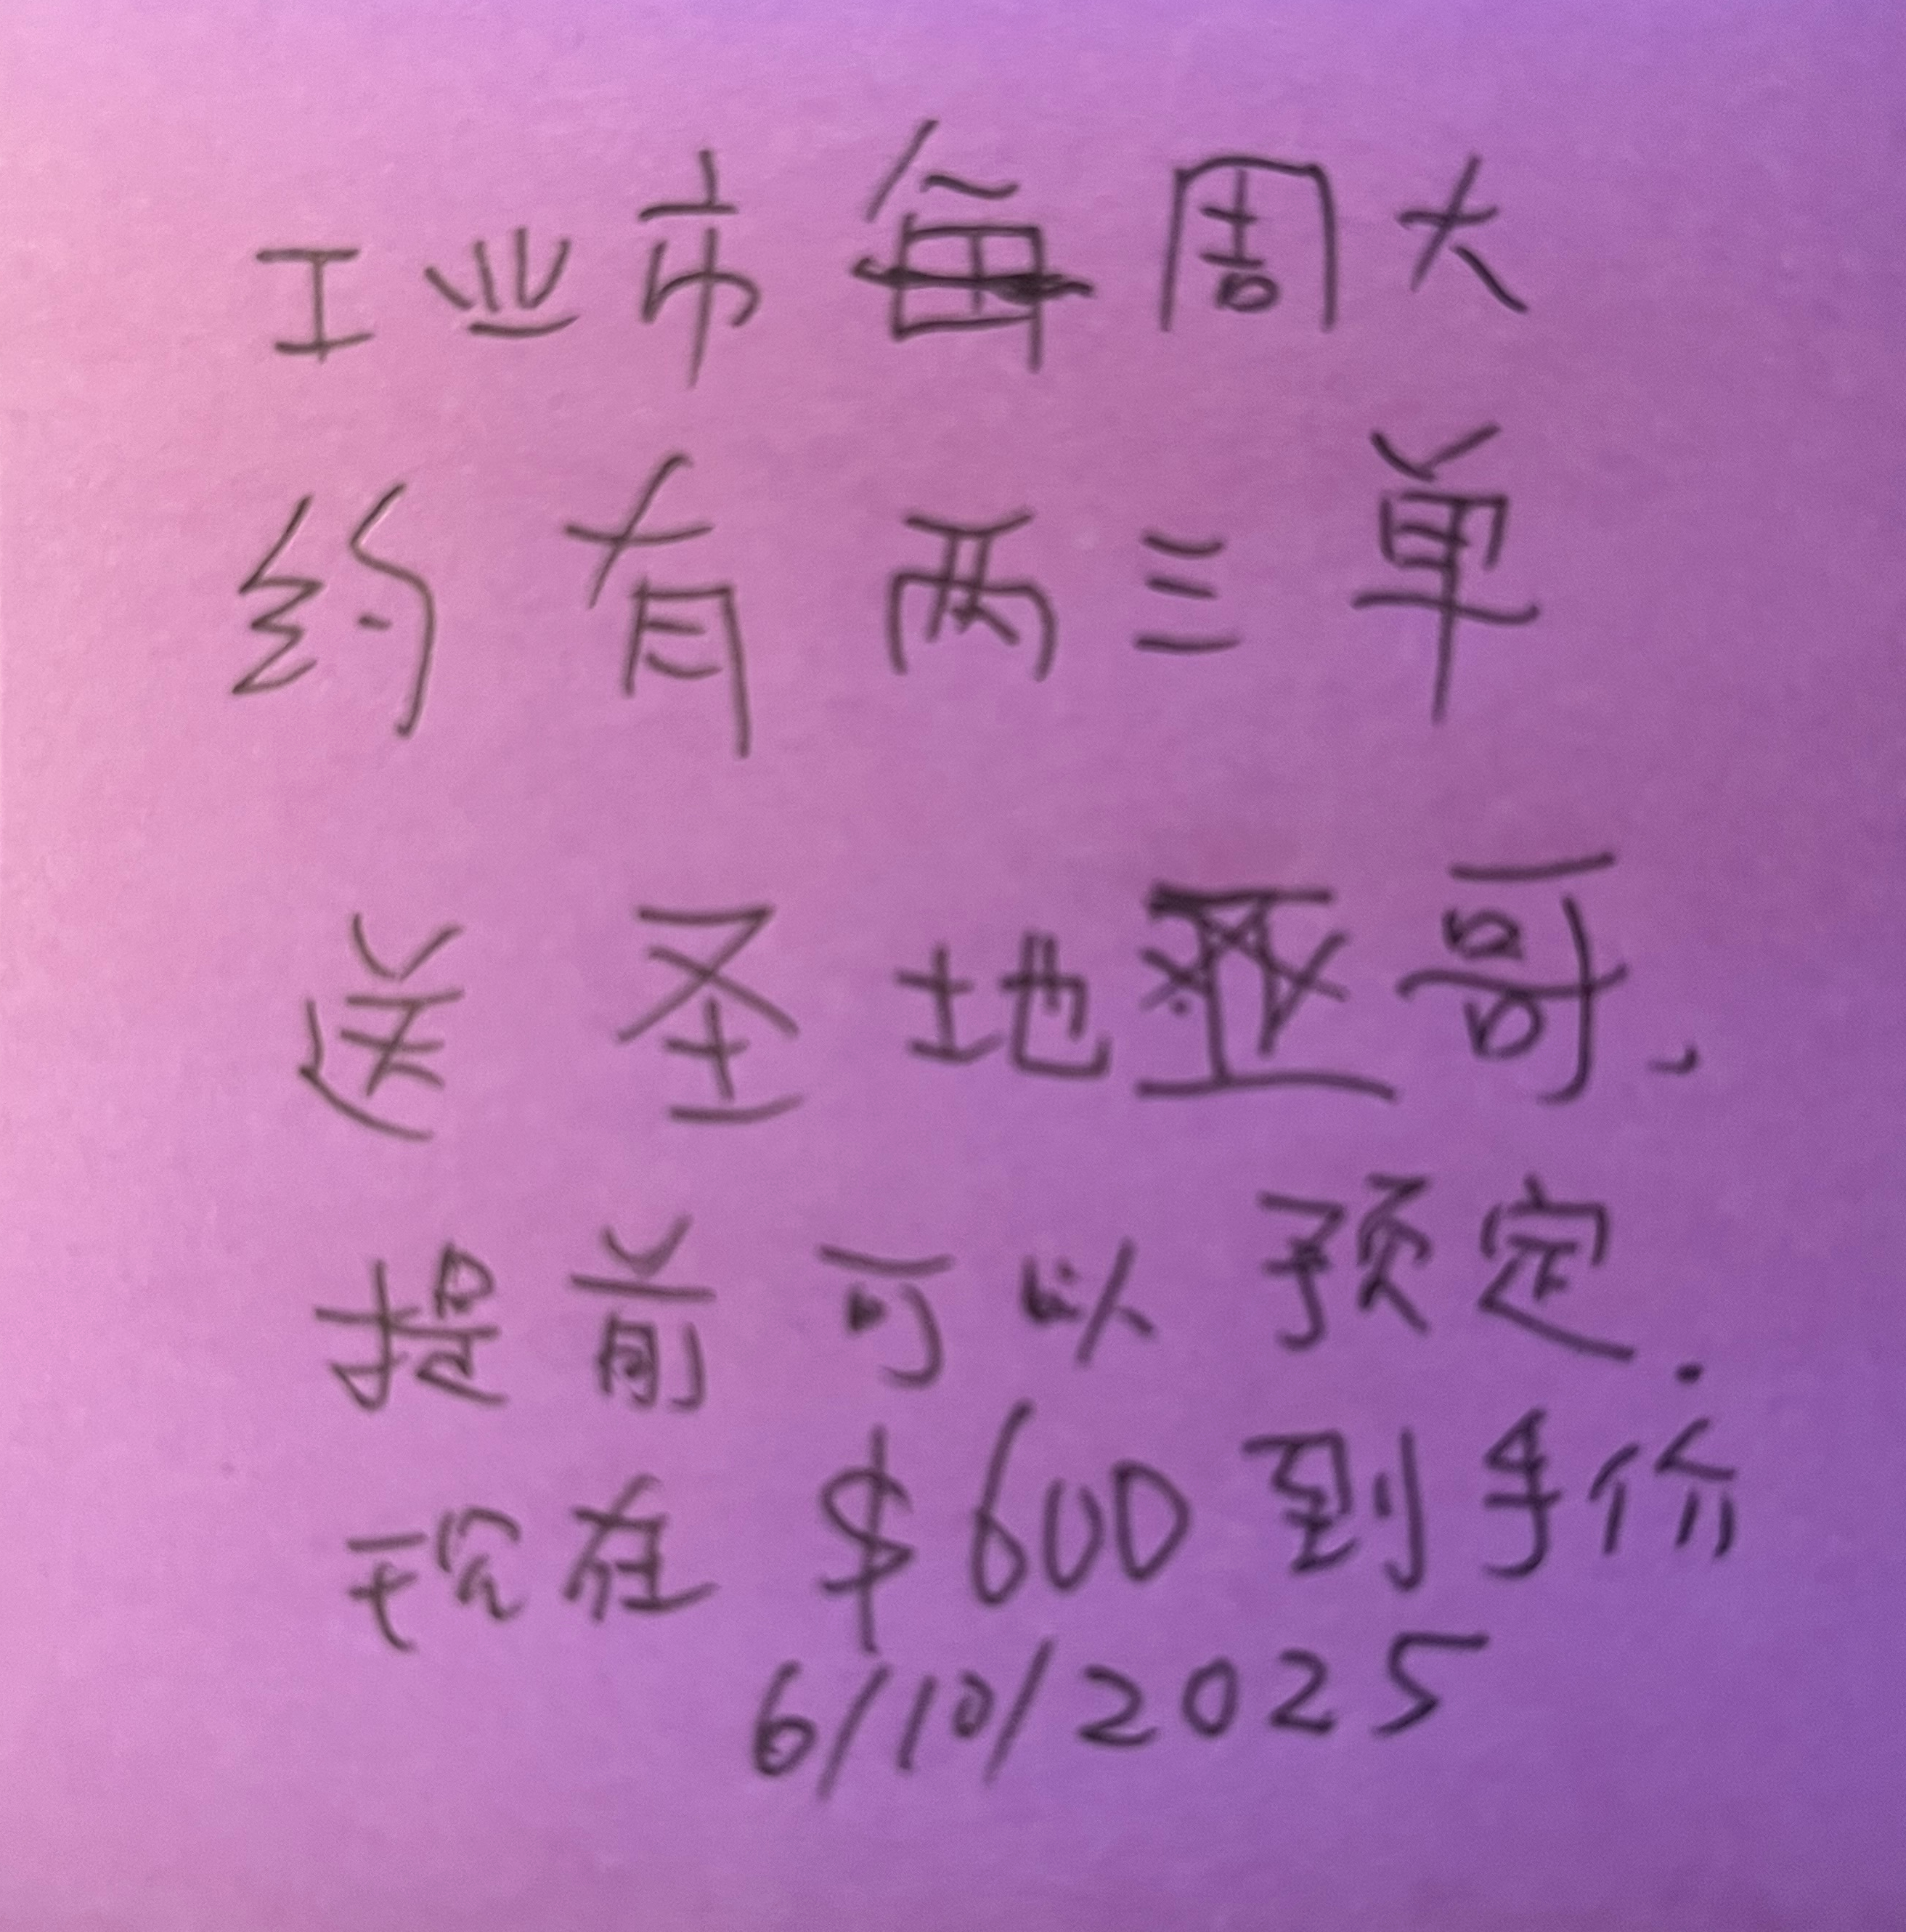 工业市每周大
约有两三单
送圣地亚哥、
提前可以预定.
现在 $600 到手价
6/10/2025